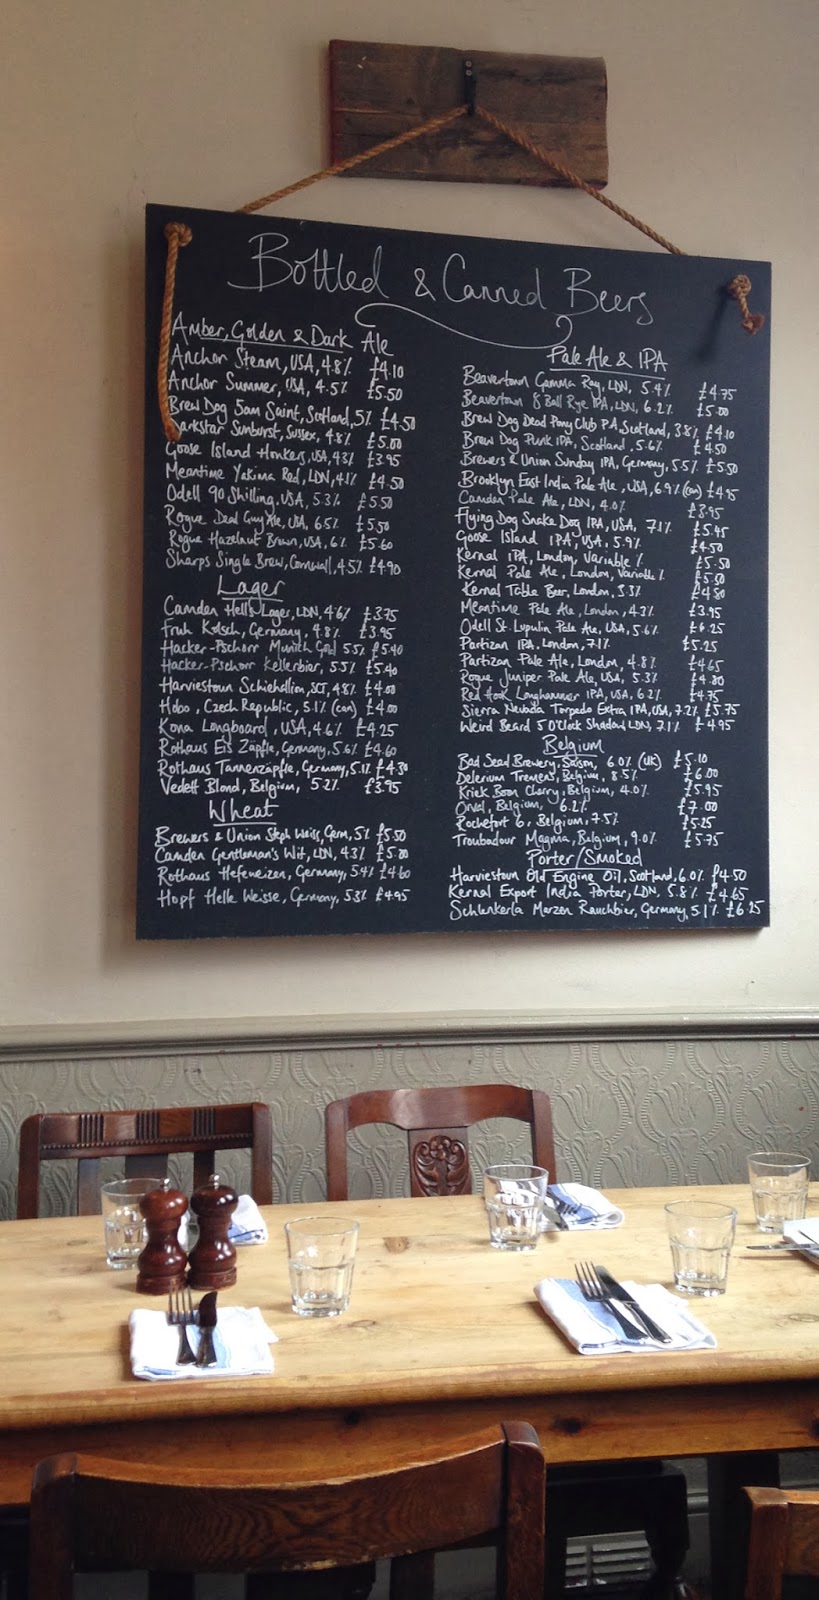 Bottled & Canned Beers
Amber, Golden & Dark Ale
Anchor Steam, USA, 4.8% £4.10
Anchor Summer, USA, 4.5% £5.50
Brew Dog 5am Saint, Scotland, 5% £4.50
Darkstar Sunburst, Sussex, 4.8% £5.00
Goose Island Honkers, USA, 4.3% £3.95
Meantime Yakima Red, LDN, 4.1% £4.50
Odell 90 Shilling, USA, 5.3% £5.50
Rogue Dead Guy Ale, USA, 6.5% £5.50
Rogue Hazelnut Brown, USA, 6% £5.60
Sharps Single Brew, Cornwall, 4.5% £4.90
Lager
Camden Hells Lager, LDN, 4.6% £3.75
Fruh Kolsch, Germany, 4.8% £3.95
Hacker-Pschorr Munich Gold 5.5% £5.40
Hacker-Pschorr Kellerbier, 5.5% £5.40
Harviestoun Schiehallion, SCT, 4.8% £4.00
Hobo, Czech Republic, 5.1% (can) £4.00
Kona Longboard, USA, 4.6% £4.25
Rothaus Eis Zäpfle, Germany, 5.6% £4.60
Rothaus Tannenzäpfle, Germany, 5.1% £4.30
Vedett Blond, Belgium, 5.2% £3.95
Wheat
Brewers & Union Steph Weiss, Germ, 5% £5.50
Camden Gentleman's Wit, LDN, 4.3% £5.00
Rothaus Hefeweizen, Germany, 5.4% £4.60
Hopf Helle Weisse, Germany, 5.3% £4.95
Pale Ale & IPA
Beavertown Gamma Ray, LDN, 5.4% £4.75
Beavertown 8 Ball Rye IPA, LDN, 6.2% £5.00
Brew Dog Dead Pony Club P.A, Scotland, 3.8% £4.10
Brew Dog Punk IPA, Scotland, 5.6% £4.50
Brewers & Union Sunday IPA, Germany, 5.5% £5.50
Brooklyn East India Pale Ale, USA, 6.9% (can) £4.95
Camden Pale Ale, LDN, 4.0% £3.95
Flying Dog Snake Dog IPA, USA, 7.1% £5.45
Goose Island IPA, USA, 5.9% £4.50
Kernal IPA, London, Variable % £5.50
Kernal Pale Ale, London, Variable % £5.50
Kernal Table Beer, London, 3.3% £4.80
Meantime Pale Ale, London, 4.3% £3.95
Odell St. Lupulin Pale Ale, USA, 5.6% £6.25
Partizan IPA, London, 7.1% £5.25
Partizan Pale Ale, London, 4.8% £4.65
Rogue Juniper Pale Ale, USA, 5.3% £4.80
Red Hook Longhammer IPA, USA, 6.2% £4.75
Sierra Nevada Torpedo Extra IPA, USA, 7.2% £5.75
Weird Beard 5 O'Clock Shadow, LDN, 7.1% £4.95
Belgium
Bad Seed Brewery, Saison, 6.0% (UK) £5.10
Delerium Tremens, Belgium, 8.5% £6.00
Kriek Boon Cherry, Belgium, 4.0% £5.95
Orval, Belgium, 6.2% £7.00
Rochefort 6, Belgium, 7.5% £5.25
Troubadour Magma, Belgium, 9.0% £5.75
Porter/Smoked
Harviestown Old Engine Oil, Scotland, 6.0% £4.50
Kernal Export India Porter, LDN, 5.8% £4.65
Schlenkerla Marzen Rauchbier, Germany, 5.1% £6.25